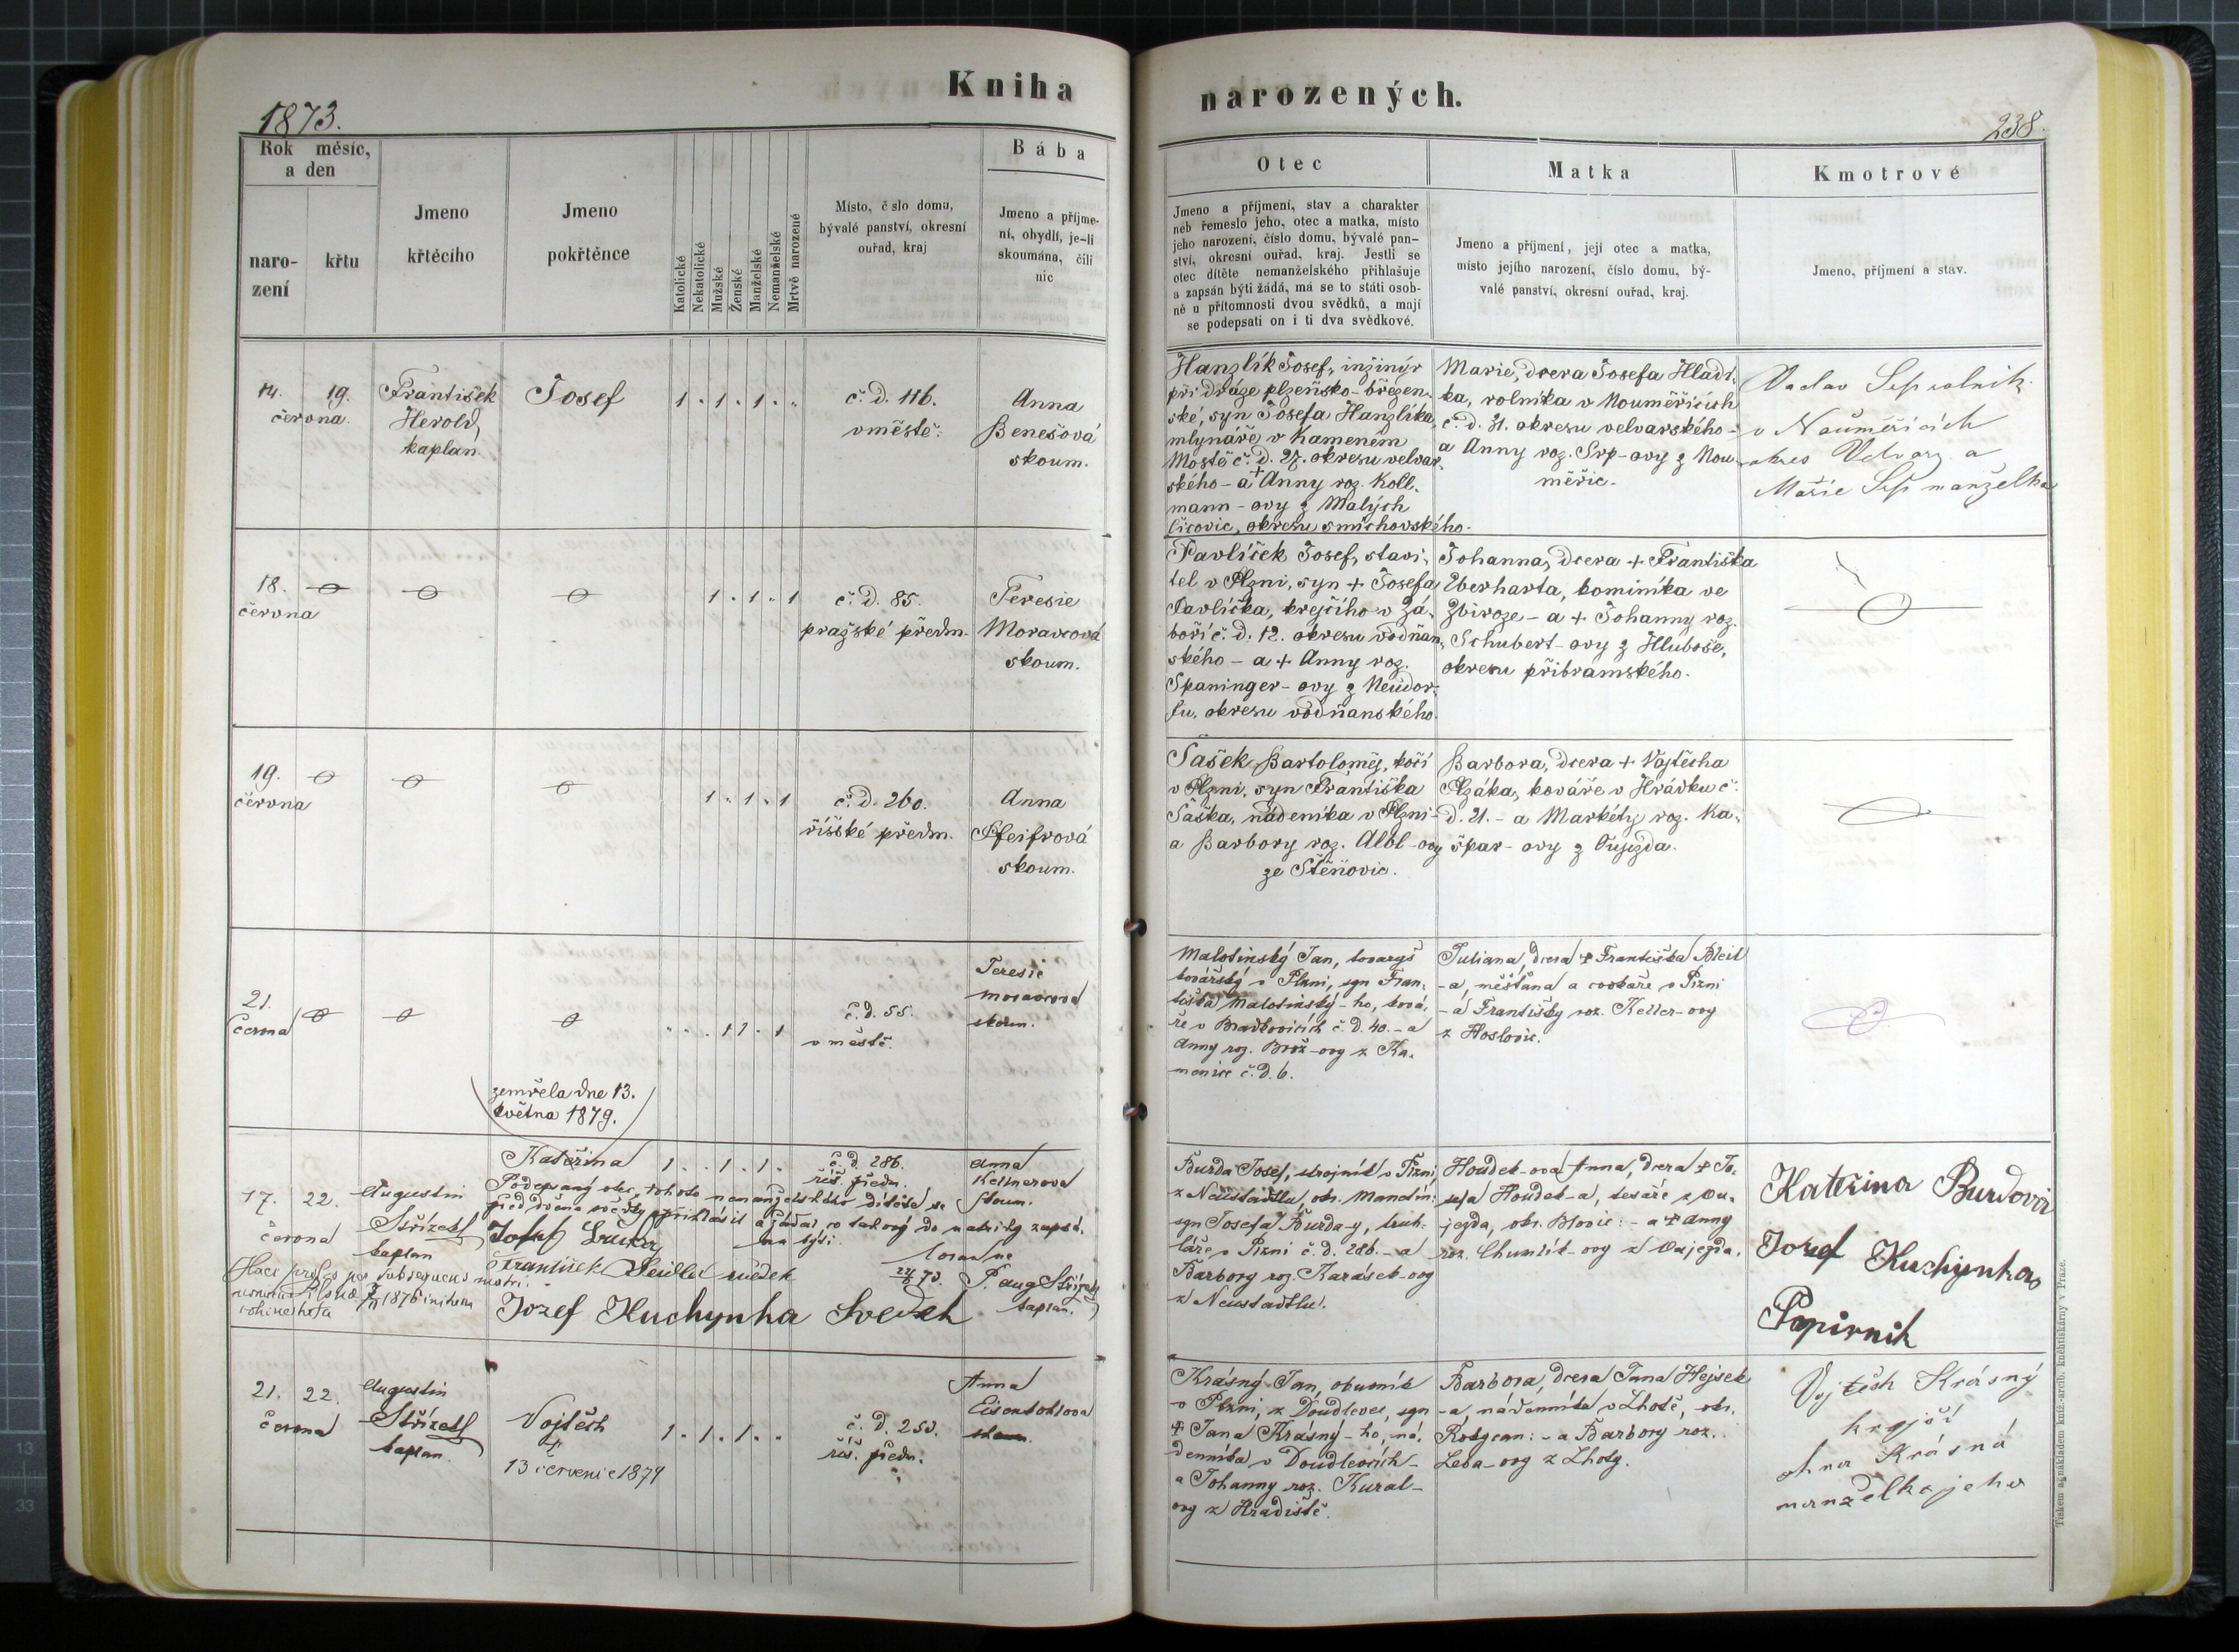 Kniha
narozených.
1873.
238.
Rok měsíc,
a den
naro-
zení
křtu
Jmeno
křtěcího
Jmeno
pokřtěnce
Katolické
Nekatolické
Mužské
Ženské
Manželské
Nemanželské
Mrtvě narozené
Místo, čslo domu,
bývalé panství, okresní
ouřad, kraj
Bába
Jmeno a příjme-
ní, obydlí, je-li
skoumána, čili
nic
Otec
Jmeno a příjmení, stav a charakter
neb řemeslo jeho, otec a matka, místo
jeho narození, číslo domu, bývalé pan-
ství, okresní ouřad, kraj. Jestli se
otec dítěte nemanželského přihlašuje
a zapsán býti žádá, má se to státi osob-
ně u přítomnosti dvou svědků, a mají
se podepsati on i ti dva svědkové.
Matka
Jmeno a příjmení, její otec a matka,
místo jejího narození, číslo domu, bý-
valé panství, okresní ouřad, kraj.
Kmotrové
Jmeno, příjmení a stav.
14. 19.
června
František
Herold,
kaplan.
Josef
1 . 1 . 1 . .
č. d. 116.
v městě.
Anna
Benešová
skoum.
Hanzlík Josef, inžinýr
při dráze plzeňsko-březen-
ské, syn Josefa Hanzlíka,
mlynáře v Kameném
Mostě č. d. 27. okresu velvar-
ského - a + Anny roz. Koll-
mann-ovy z Malých
Čičovic, okresu smíchovského.
Marie, dcera Josefa Hladí-
ka, rolníka v Nouměřicích
č. d. 31. okresu velvarského -
a Anny roz. Srp-ovy z Nou-
měřic.
Vaclav Srp rolnik
v Nouměřicích
okres Velvary a
Marie Srp manželka
18.
června
1 . 1 . 1
č. d. 85.
pražské předm.
Teresie
Moravcová
skoum.
Pavlíček Josef, stavi-
tel v Plzni, syn + Josefa
Pavlíčka, krejčího v Zá-
boří č. d. 12. okresu vodňan-
ského - a + Anny roz.
Spaninger-ovy z Neudor-
fu, okresu vodňanského.
Johanna, dcera + Františka
Eberharta, kominíka ve
Zbiroze - a + Johanny roz.
Schubert-ovy z Hluboše,
okresu příbramského.
19.
června
1 . 1 . 1
č. d. 260.
říšské předm.
Anna
Pfeifrová
skoum.
Šašek Bartoloměj, kočí
v Plzni, syn Františka
Šaška, nádeníka v Plzni -
a Barbory roz. Albl-ovy
ze Štěnovic.
Barbora, dcera + Vojtěcha
Plzáka, kováře v Hrádku č.
d. 21. - a Markéty roz. Ka-
špar-ovy z Oujezda.
21.
června
. . . 1 1 . 1
č. d. 55.
v městě.
Teresie
Moravcová
skoum.
Malotinský Jan, tovaryš
kovářský v Plzni, syn Fran-
tiška Malotinský-ho, ková-
ře v Bradkovicích č. d. 40. - a
Anny roz. Brož-ovy z Ka-
menice č. d. 6.
Juliana, dcera + Františka Bleil
-a, měšťana a cvokaře v Plzni
- a Františky roz. Keller-ovy
z Hoslovic.
zemřela dne 13.
května 1879.
17. 22.
června
Augustin
Střízek
kaplan
Kateřina
1 . . 1 . 1 .
č. d. 286.
říš. předm.
Anna
Kellnerova
skoum.
Podepsaný otec tohoto nemanželského dítěte se
před dvěma svědky přihlásil a žádal co takový do matriky zapsá-
na býti.
František Seidler svědek
22/6 73. P. Aug Střízek
kaplan.
Jozef Kuchynka Svedek
Burda Josef, strojník v Plzni,
z Neustadtlu, okr. Manetín:
syn Josefa Burda-y, truh-
láře v Plzni č. d. 286. - a
Barbory roz. Karásek-ovy
z Neustadtlu.
Houdek-ova Anna, dcera + Jo-
sefa Houdek-a, tesaře z Ou-
jezda, okr. Blovic: - a + Anny
roz. Chumlík-ovy z Oujezda.
Kateřina Burdová
Jozef Kuchynka
Papirnik
21. 22.
června
Augustin
Střízek
kaplan.
Vojtěch
+
13 červenie 1879
1 . 1 . 1 . .
č. d. 250.
říš. předm.
Anna
skoum.
Krásný Jan, obuvník
v Plzni, z Doudlevec, syn
+ Jana Krásný-ho, ná-
denníka v Doudlevcích -
a Johanny roz. Kural-
ovy z Hradiště.
Barbora, dcera Jana Hejsek
-a, nádenníka v Lhotě, okr.
Rokycan: - a Barbory roz.
Leba-ovy z Lhoty.
Vojtěch Krásný
krejší
Krásná
manželka jeho
Tiskem a nákladem kníž.-arcib. knihtiskárny v Praze.
13
33